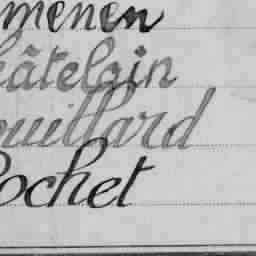 menen
hâtelain
ouillard
Rochet